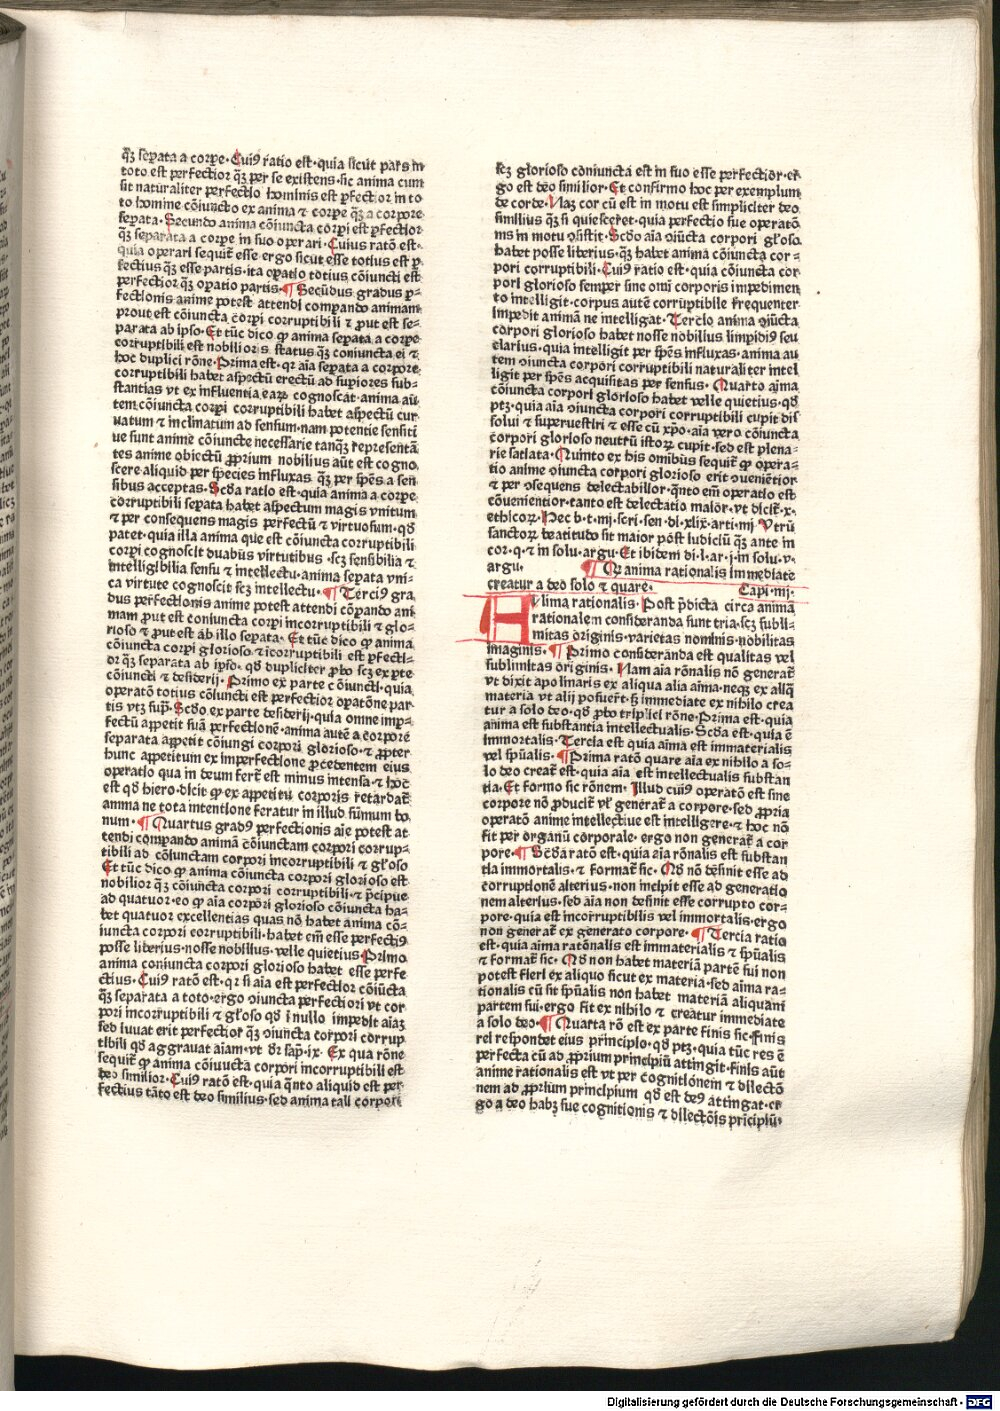 qʒ seꝑata a corꝑe· Cuiꝰ ratio est· quia sicut pars in
toto est perfectior qʒ per se existens· sic anima cum
sit naturaliter perfectio hominis est ꝑfectior in to
to homine cōiuncto ex anima ⁊ corꝑe qʒ a corpore
seꝑata· Secundo anima cōiuncta corꝑi est ꝑfectior
qʒ separata a corꝑe in suo operari· Cuius ratō est·
quia operari sequit̄ esse ergo sicut esse totius est ꝑ-
fectius qʒ esse partis· ita oꝑatio totius cōiuncti est
perfectior qʒ oꝑatio partis· ¶ Secūdus gradus ꝑ-
fectionis anime potest attendi comꝑando animam
prout est cōiuncta corꝑi corruptibili ⁊ ꝓut est se-
parata ab ipso· Et tūc dico ꝙ anima seꝑata a corꝑe
corruptibili est nobilioris status qʒ coniuncta ei ⁊
hoc duplici rōne· Prima est· qr aīa seꝑata a corpore
corruptibili habet aspectū erectū ad suꝑiores sub-
stantias vt ex influentia earꝝ cognoscat· anima au-
tem cōiuncta corꝑi corruptibili habet aspectū cur
uatum ⁊ inclinatum ad sensum· nam potentie sensiti
ue sunt anime cōiuncte necessarie tanqʒ representā
tes anime obiectū ꝓprium nobilius aūt est cogno-
scere aliquid per species influxas qʒ per sp̄es a sen
sibus acceptas· Scd̄a ratio est· quia anima a corꝑe
corruptibili seꝑata habet aspectum magis vnitum
⁊ per consequens magis perfectū ⁊ virtuosum· qd̄
patet· quia illa anima que est cōiuncta corruptibili
corꝑi cognoscit duabus virtutibus· scʒ sensibilia ⁊
intelligibilia sensu ⁊ intellectu· anima seꝑata vni-
ca virtute cognoscit scʒ intellectu· ¶ Terciꝰ gra
dus perfectionis anime potest attendi cōꝑando ani
mam ꝓut est coniuncta corꝑi incorruptibili ⁊ glo-
rioso ⁊ ꝓut est ab illo seꝑata· Et tūc dico ꝙ anima
cōiuncta corꝑi glorioso ⁊ icorruptibili est ꝑfecti-
or qʒ separata ab ip̄o· qd̄ dupliciter ꝓbo scʒ ex ꝑte
cōiuncti ⁊ desiderij· Primo ex parte cōiuncti· quia
operatō totius cōiuncti est perfectior oꝑatōne par-
tis vtʒ sup̄· Scd̄o ex parte desiderij· quia omne imp-
fectū appetit suā perfectionē· anima autē a corpore
separata appetit cōiungi corpori glorioso· ⁊ ꝓpter
hunc appetitum ex imperfectione ꝓcedentem eius
operatio qua in deum fert̄ est minus intensa· ⁊ hoc
est qd̄ hiero· dicit ꝙ ex appetitu corporis retardat̄
anima ne tota intentione feratur in illud summum bo
num· ¶ Quartus gradꝰ perfectionis aīe potest at
tendi comꝑando animā cōiunctam corꝑi corrup-
tibili ad cōiunctam corpori incorruptibili ⁊ gl̄oso
Et tūc dico ꝙ anima cōiuncta corꝑi glorioso est
nobilior qʒ cōiuncta corꝑi corruptibili· ⁊ p̄cipue
ad quatuor· eo ꝙ aīa corpori glorioso cōiuncta ha-
bet quatuor excellentias quas nō habet anima cō-
iuncta corpori corruptibili· habet em̄ esse perfectiꝰ
posse liberius· nosse nobilius· velle quietius· Primo
anima coniuncta corpori glorioso habet esse perfe
ctius· Cuiꝰ ratō est· qr si aīa est perfectior cōiūcta
qʒ separata a toto· ergo ↄiuncta perfectiori vt cor
pori incorruptibili ⁊ gl̄oso qd̄ i nullo impedit aīaʒ
sed iuuat erit perfectior qʒ ↄiuncta corpori corrup
tibili qd̄ aggrauat aīam· vt dr̄ sap̄· ix· Ex qua rōne
sequit̄ ꝙ anima cōiuucta corpori incorruptibili est
deo similior· Cuiꝰ ratō est· quia q̄nto aliquid est per
fectius tāto est deo similius· sed anima tali corpori
scʒ glorioso coniuncta est in suo esse perfectior· er-
go est deo similior· Et confirmo hoc per exemplum
de corde· Naʒ cor cū est in motu est simpliciter deo
similius qʒ si quiesceret· quia perfectio sue operatō
nis in motu ↄsistit· Scd̄o aīa ↄiūcta corpori gl̄oso
habet posse liberius· qʒ habet anima cōiuncta cor-
pori corruptibili· Cuiꝰ ratio est· quia cōiuncta cor
pori glorioso semper sine omī corporis impedimen
to intelligit· corpus autē corruptibile frequenter
impedit animā ne intelligat· Tercio anima ↄiūcta
corpori glorioso habet nosse nobilius limpidiꝰ seu
clarius· quia intelligit per sp̄es influxas· anima au
tem ↄiuncta corpori corruptibili naturaliter intel
ligit per sp̄es acquisitas per sensus· Quarto aīma
cōiuncta corpori glorioso habet velle quietius· qd̄
ptʒ· quia aīa ↄiuncta corpori corruptibili cupit dis
solui ⁊ superuestiri ⁊ esse cū xp̄o· aīa vero cōiuncta
corpori glorioso neutrū istorꝝ cupit· sed est plena-
rie satiata· Quinto ex his omibꝰ sequit̄ ꝙ opera-
tio anime ↄiuncta corpori glorioso erit ↄuenientior
⁊ per ↄsequens delectabilior· q̄nto em̄ operatio est
cōuenientior· tanto est delectatio maior· vt dicit̄· x·
ethicorꝝ· Hec b· t· mi· scri· sen· di· xlix· arti· mi· Vtrū
sanctorꝝ beatitudo sit maior post iudiciū qʒ ante in
cor· q· ⁊ in solu· argu· Et ibidem di· l· ar· j· in solu· v·
argu· ¶ Qr anima rationalis immediate
creatur a deo solo ⁊ quare· Capi· iij·
ANima rationalis· Post p̄dicta circa anima
rationalem consideranda sunt tria· scʒ subli-
mitas originis· varietas nominis· nobilitas
imaginis· ¶ Primo consideranda est qualitas vel
sublimitas originis· Nam aīa rōnalis nō generat̄
vt dixit apolinaris ex aliqua alia aīma· neqʒ ex aliq̄
materia vt alij posuer̄t· sʒ immediate ex nihilo crea
tur a solo deo· qd̄ ꝓbo triplici rōne· Prima est· quia
anima est substantia intellectualis· Scd̄a est· quia ē
immortalis· Tercia est quia aīma est immaterialis
vel sp̄ualis· ¶ Prima ratō quare aīa ex nihilo a so-
lo deo creat̄ est· quia aīa est intellectualis substan
tia· Et formo sic rōnem· Illud cuiꝰ operatō est sine
corpore nō ꝓducit̄ vl̄ generat̄ a corpore· sed ꝓpria
operatō anime intellectiue est intelligere· ⁊ hoc nō
fit per organū corporale· ergo non generat̄ a cor
pore· ¶ Scd̄a ratō est· quia aīa rōnalis est substan
tia immortalis· ⁊ format̄ sic· Qd̄ nō desinit esse ad
corruptionē alterius· non incipit esse ad generatio
nem alterius· sed aīa non desinit esse corrupto cor-
pore· quia est incorruptibilis vel immortalis· ergo
non generat̄ ex generato corpore· ¶ Tercia ratio
est· quia aīma ratōnalis est immaterialis ⁊ sp̄ualis
⁊ format̄ sic· Qd̄ non habet materiā partē sui non
potest fieri ex aliquo sicut ex materia· sed aīma ra-
tionalis cū sit sp̄ualis non habet materiā aliquam
partem sui· ergo fit ex nihilo ⁊ creatur immediate
a solo deo· ¶ Quarta rō est ex parte finis sic· finis
rei respondet eius principio· qd̄ ptʒ· quia tūc res ē
perfecta cū ad ꝓprium principiū attingit· finis aūt
anime rationalis est vt per cognitionem ⁊ dilectō
nem ad ꝓprium principium qd̄ est deꝰ attingat· er
go a deo habʒ sue cognitionis ⁊ dilectōis pricipiū·
Digitalisierung gefördert durch die Deutsche Forschungsgemeinschaft - DFG